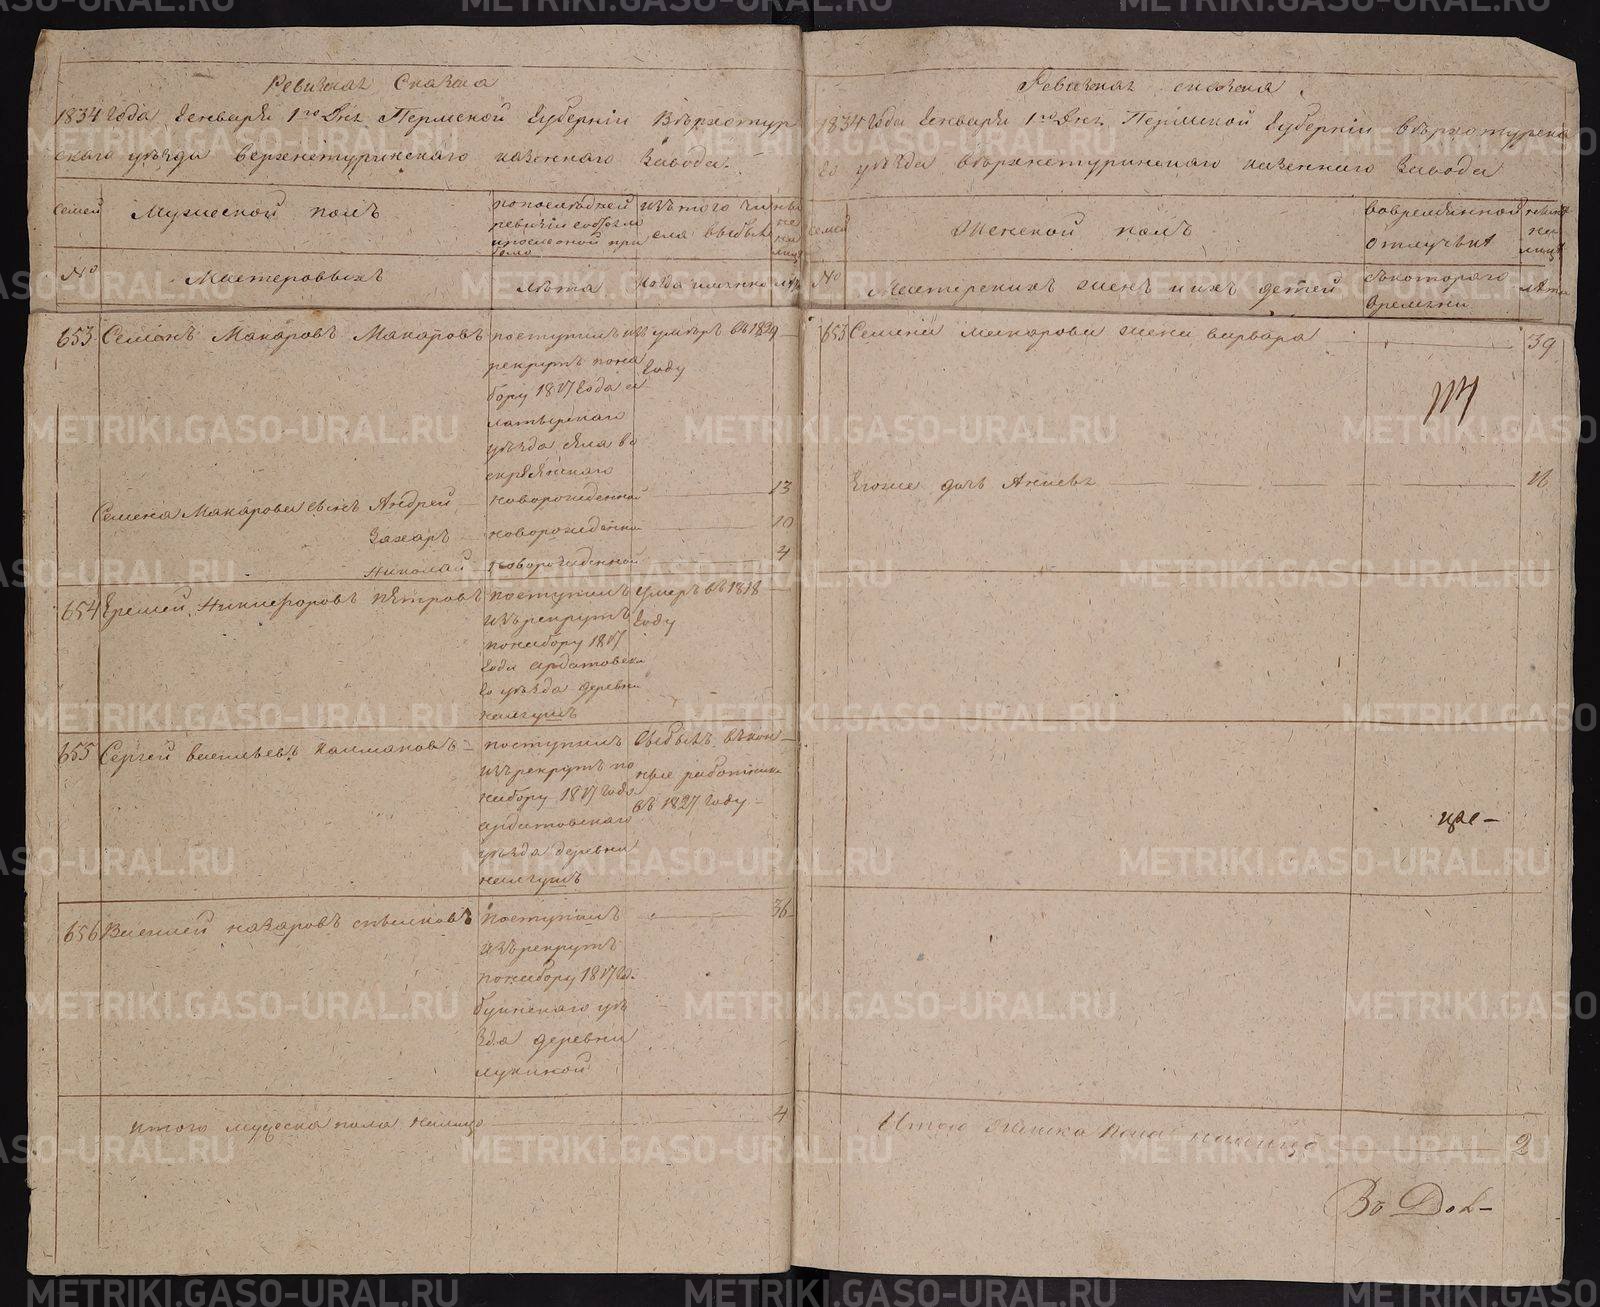 Ревизкая Сказка
1834 Года Генваря 1го Дня Пермской Губернии Верхотур
скаго уезда верхнетуринскаго казеннаго Завода.
семей
Мужеской полъ
изъ того чи
сла выбылъ
№
Мастеровыхъ
лета
когда именно
лета
653 Семенъ Макаровъ Макаровъ
поступилъ из
рекрутъ пона
бору 1817 Года а
латырскаго
уезда села во
скресенскаго
умеръ въ 1829
Году
Семена Макарова сынъ Андрей
новорожденной
13
Захаръ
новорожденной
10
Николай
новорожденной
4
654 Еремей Никифоровъ Петровъ
поступилъ
изъ рекрутъ
понабору 1817
Года ардатовска
го уезда деревни
умеръ въ 1818
Году
655 Сергей васильевъ
поступилъ
изъ рекрутъ по
набору 1817 Года
ардатовскаго
уезда деревни
выбылъ въ кон
ные работники
въ 1827 Году
656 Василей назаровъ
поступилъ
изъ рекрутъ
понабору 1817 Го.
буинскаго уе
зда деревни
лукиной
36
итого мужеска пола налицо
4
Ревизкая сказка
1834 Года Генваря 1го Дня Пермской Губернии верхотурска
го уезда верхнетуринскаго казеннаго Завода
семей
Женской полъ
вовременной
отлучке
№
Мастерскихъ женъ и ихъ детей
съкотораго
времени
лета
653 Семена макарова жена варвара
39
Егоже дочь
16
Итого женска пола налицо
2
METRIKI.GASO-URAL.RU